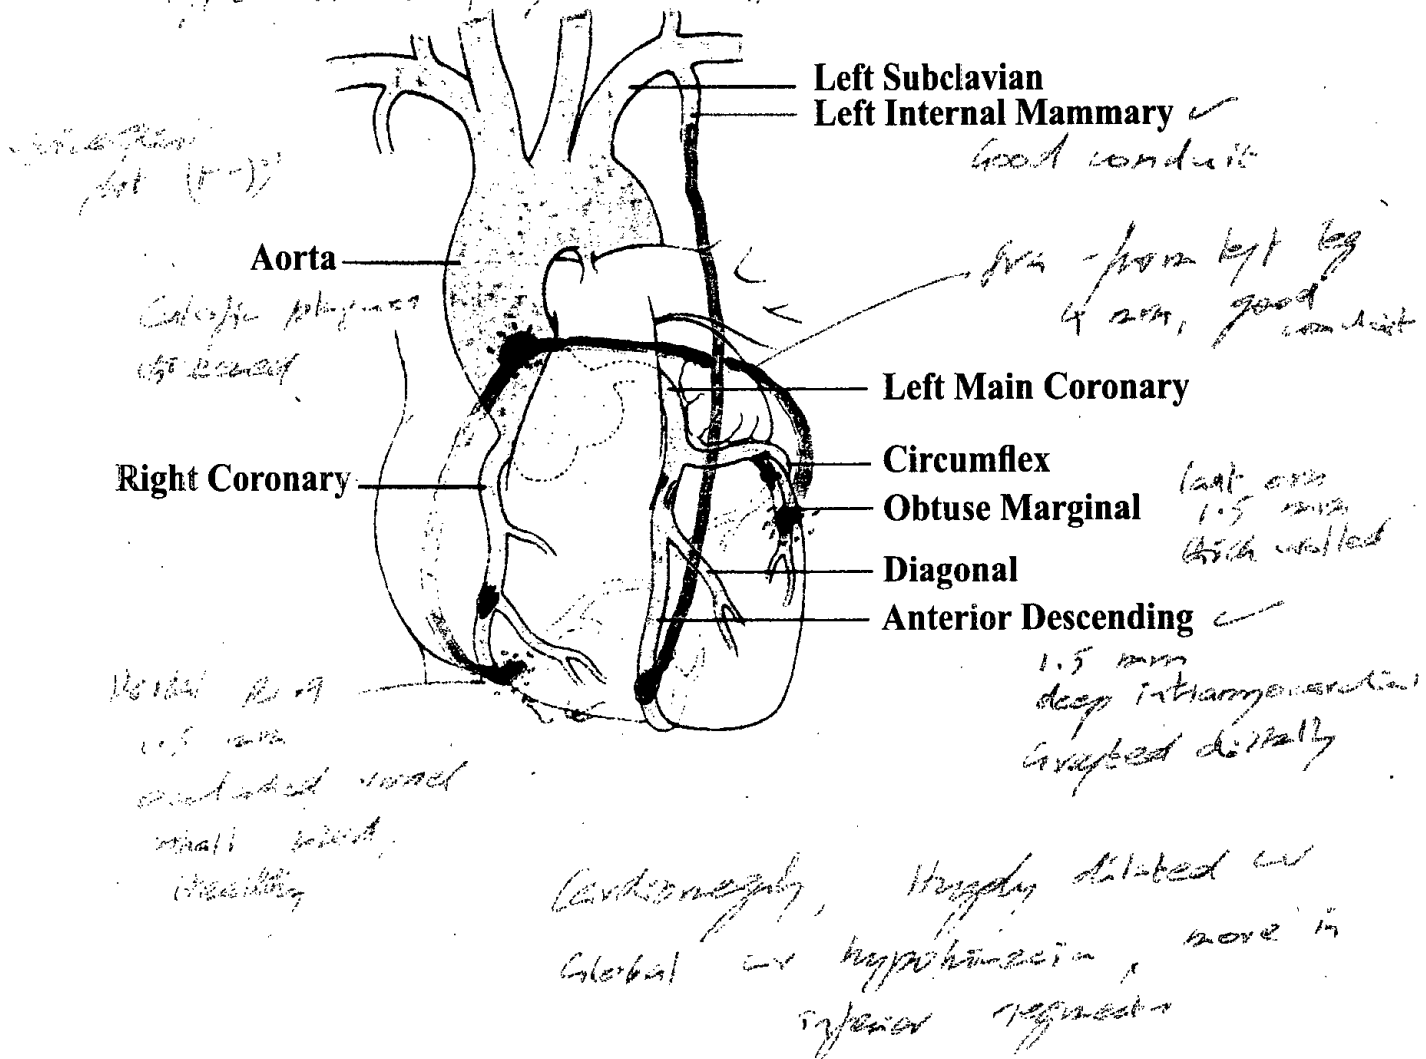 Left Subclavian
Left Internal Mammary ✓
Good conduit
from left leg
4 mm, good
conduit
Aorta
Calcific plaques
Left Main Coronary
Right Coronary
Circumflex
last om
Obtuse Marginal
1.5 mm
thick walled
Diagonal
Anterior Descending ✓
1.5 mm
deep intramyocardial
Grafted distally
1.5 mm
occluded vessel
small sized,
Healthy
Cardiomegaly, Hugely dilated LV
Global LV hypokinesia, more in
inferior segments